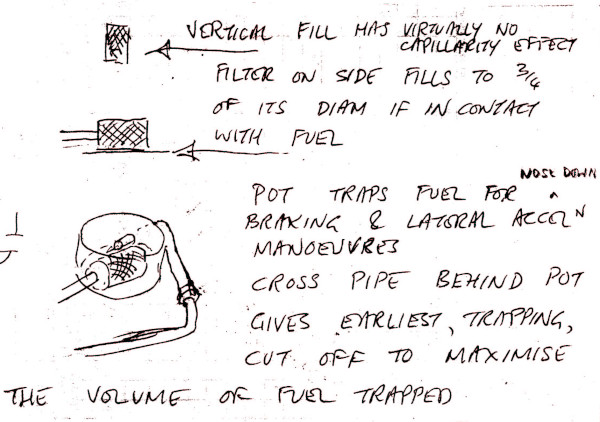 VERTICAL FILL HAS VIRTUALLY NO
CAPILLARITY EFFECT
FILTER ON SIDE FILLS TO 3/4
OF ITS DIAM IF IN CONTACT
WITH FUEL
NOSE DOWN
POT TRAPS FUEL FOR ^
BRAKING & LATORAL ACCELN
MANOEUVRES
CROSS PIPE BEHIND POT
GIVES EARLIEST, TRAPPING,
CUT OFF TO MAXIMISE
THE VOLUME OF FUEL TRAPPED